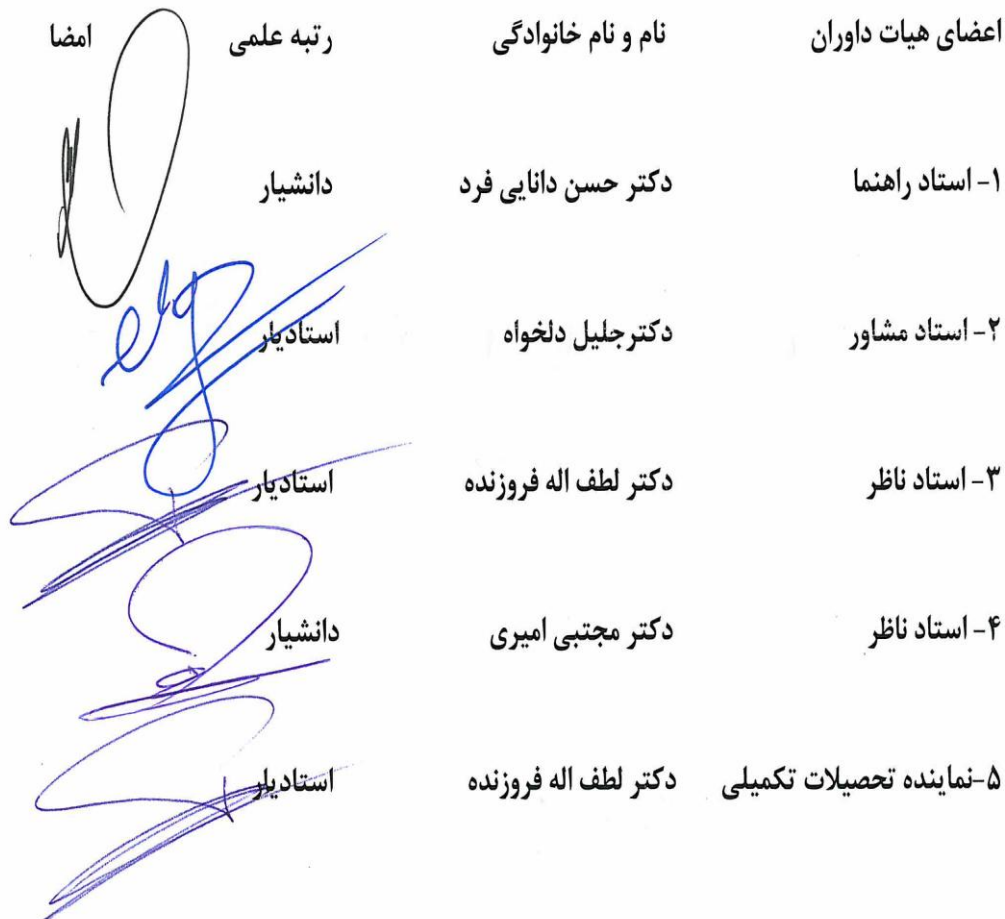 اعضای هیات داوران نام و نام خانوادگی رتبه علمی امضا
۱- استاد راهنما دکتر حسن دانایی فرد دانشیار
۲- استاد مشاور دکترجلیل دلخواه استادیار
۳- استاد ناظر دکتر لطف اله فروزنده استادیار
۴- استاد ناظر دکتر مجتبی امیری دانشیار
۵-نماینده تحصیلات تکمیلی دکتر لطف اله فروزنده استادیار